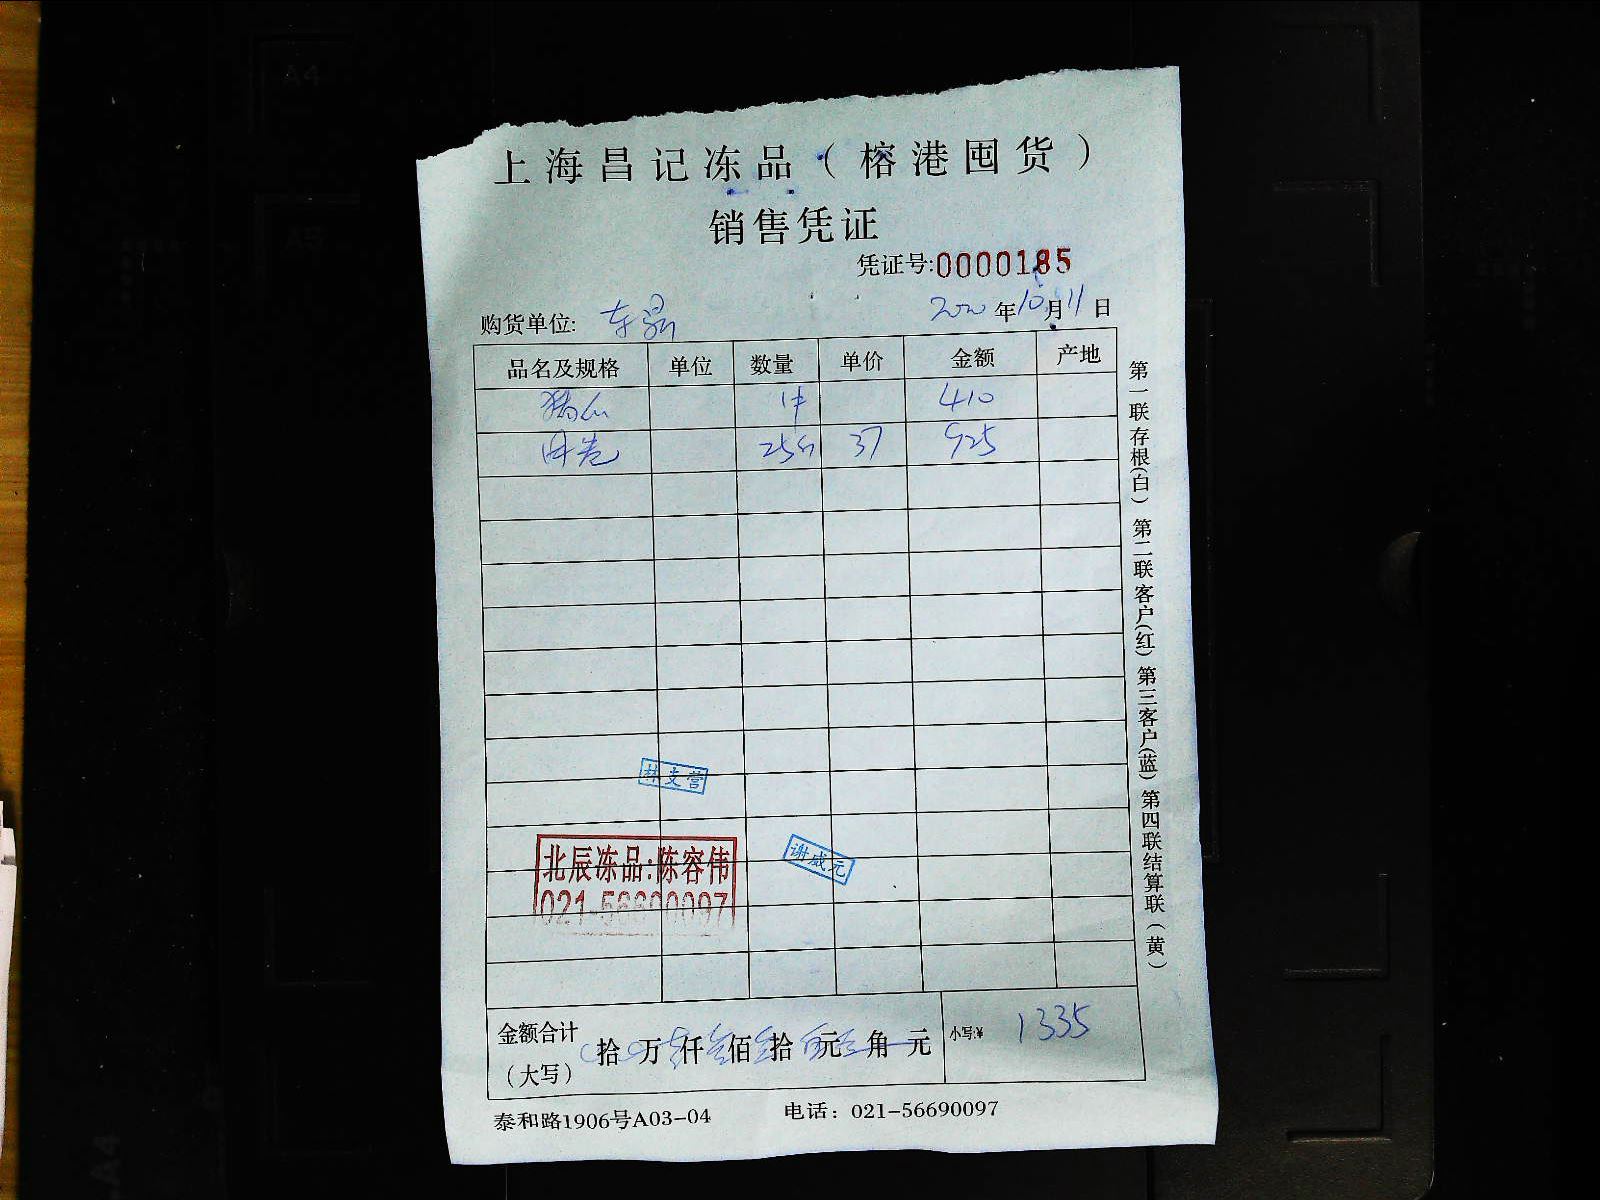 上海昌记冻品（榕港囤货）
销售凭证
凭证号:0000185
购货单位: 2020年10月11日
品名及规格 单位 数量 单价 金额 产地
1件 410
25 37 925
第一联存根(白) 第二联客户(红) 第三客户(蓝) 第四联结算联(黄)
林支营
北辰冻品:陈容伟
021-56690097
谢威元
金额合计
(大写)
拾 万 仟 佰 拾 元 角 元
小写:¥ 1335
泰和路1906号A03-04 电话：021-56690097
A4
A5
A4